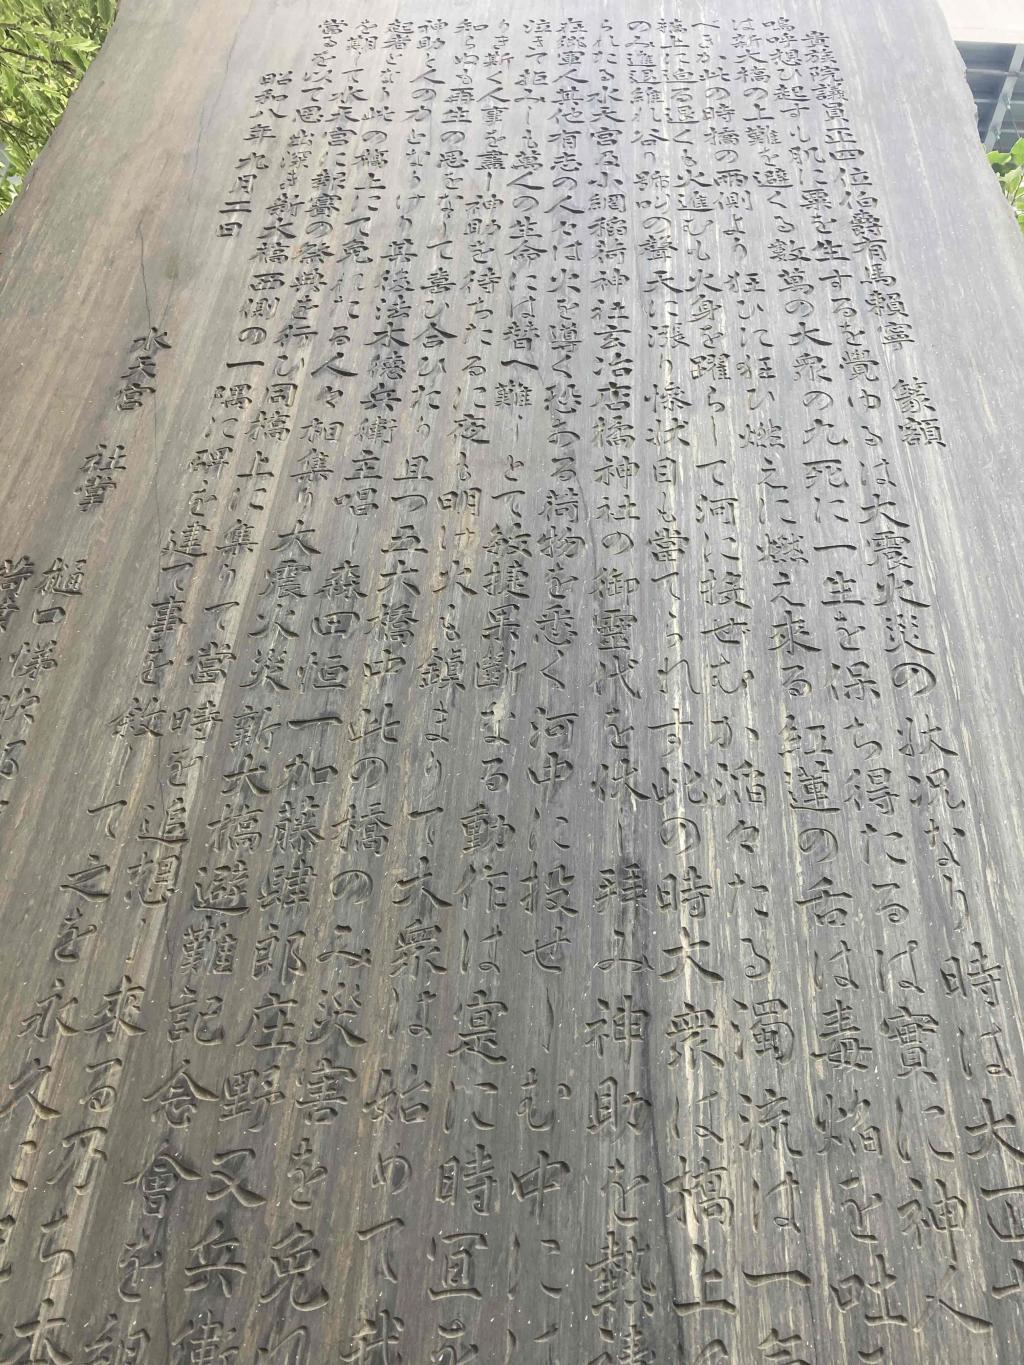 貴族院議員正四位伯爵有馬頼寧　篆額
嗚呼想ひ起すも肌に粟を生するを覺ゆるは大震火災の状況なり時は大正
は新大橋の上難を避くる數萬の大衆の九死に一生を保ち得たるは實に神人
べきか此の時橋の兩側より狂ひに狂ひ燃えに燃え来る紅蓮の舌は毒焔を吐
橋上に迫る退くも火進むも火身を躍らして河に投せむか滔々たる濁流は一
のみ進退維れ谷り號叫の聲天に漲り惨状目も當てられす此の時大衆は橋上
られたる水天宮及小網稲荷神社玄冶店橘神社の御靈代を休し拜み神助を熱
在郷軍人其他有志の人々は火を導く恐ある荷物を悉く河中に投せしむ中に
泣きて拒みしも萬人の生命には替へ難しとて敏捷果斷なる動作は寔に時宜
りき斯く人事を盡し神助を待ちたるに夜も明け火も鎮まりて大衆は始めて我
知らぬも再生の思をなして喜び合ひたり且つ五大橋中此の橋のみ災害を免れ
神助と人の力となりけり其後法木徳兵衛主唱し森田恒一加藤肆郎庄野又兵衛
起者となり此の橋上にて免れたる人々相集り大震火災新大橋避難記念會を
を期して水天宮に報賽の祭典を行ひ同橋上に集りて當時を追想し來る乃ち
當るを以て思出深き新大橋西側の一隅に碑を建て事を敘して之を永久に
昭和八年九月二日
水天宮　社掌　樋口悌次郎